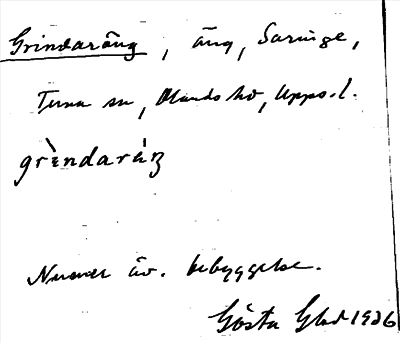 Grindaräng, äng, Saringe,
Tuna sn, Olands hd, Upps. l.
grèndaráŋ
Numer äv. bebyggelse.
Gösta Glad 1936